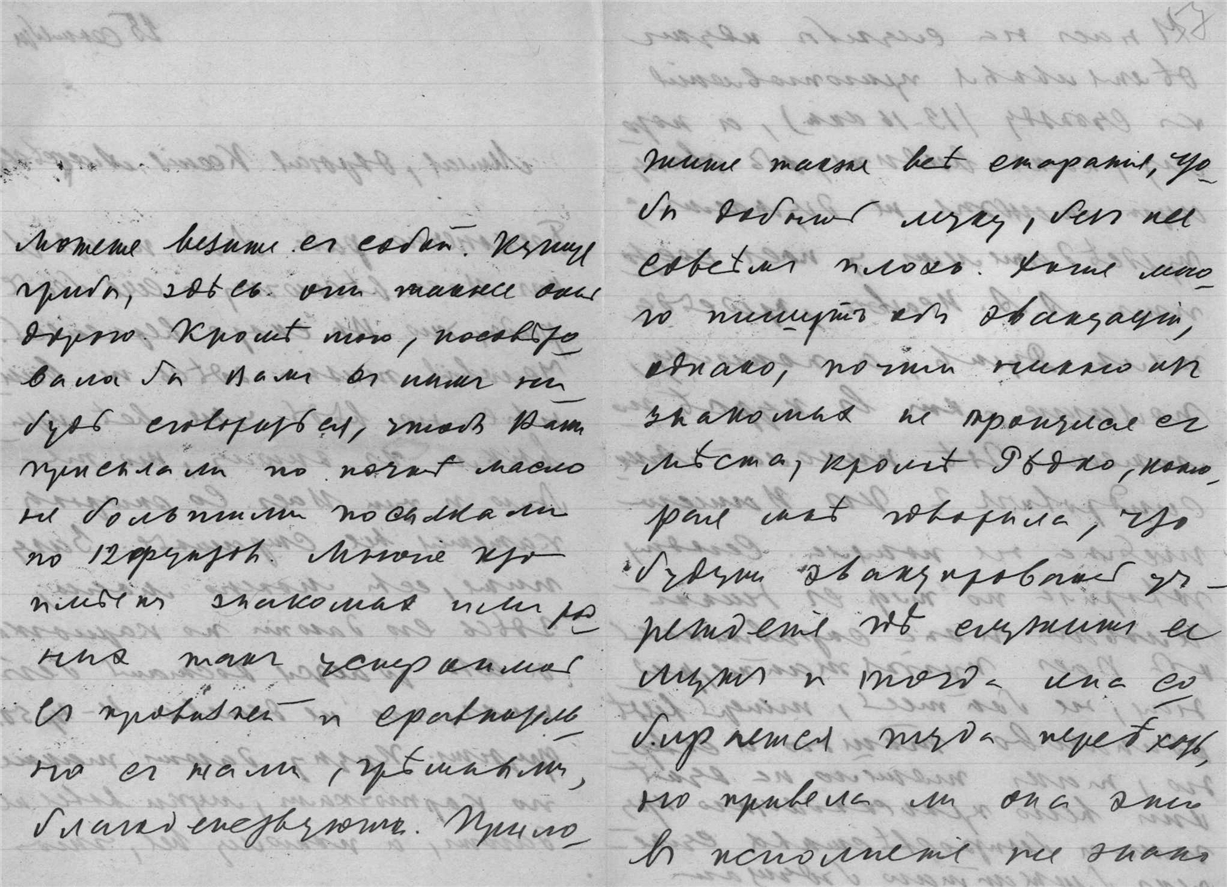 можете везите съ собой. Купите
грибы, здѣсь они также очень
дорого. Кромѣ того, посовѣто-
вала бы Вамъ съ кѣмъ ни-
будь сговориться, чтобы Вамъ
присылали по почтѣ масло
не большими посылками
по 12 фунтовъ. Многіе про
знакомыхъ или род-
ныхъ такъ устроились
съ провизіей и сравнитель-
но съ нами, грѣшными,
благоденствуютъ. Прило-
жите также всѣ старанія, что-
бы добыть муку, безъ нее
совсѣмъ плохо. Хотя мно-
го пишутъ объ эвакуаціи,
однако, почти никто изъ
знакомыхъ не тронулся съ
мѣста, кромѣ Рѣдко, кото-
рая мнѣ говорила, что
будутъ эвакуировать уч-
режденіе гдѣ служитъ ея
мужъ и тогда она со-
бирается туда переѣхать,
но привела ли она это
въ исполненіе не знаю